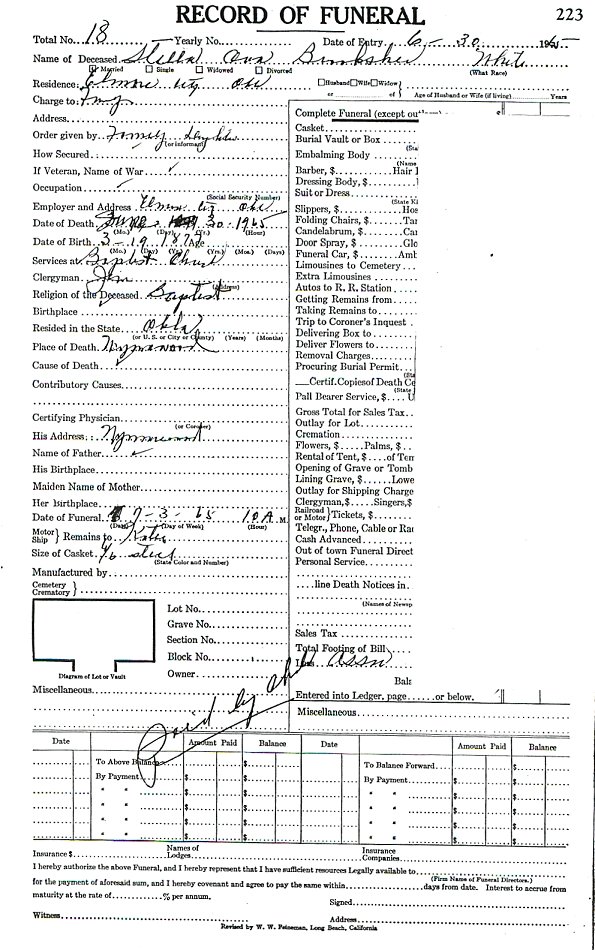 RECORD OF FUNERAL
223
Total No. 18 Yearly No. Date of Entry 6 - 30 1965
Name of Deceased Stella Ava White
Married Single Widowed Divorced (What Race)
Residence: Elmore City Okl Husband Wife Widow
or of Age of Husband or Wife (if living) Years
Charge to:
Address
Order given by Family
(or informant)
How Secured
If Veteran, Name of War
Occupation
(Social Security Number)
Employer and Address Elmore City Okl
Date of Death June 30 - 1965
(Mo.) (Day) (Yr.) (Hour)
Date of Birth 3 - 19 - 187 Age
(Mo.) (Day) (Yr.) (Yrs.) (Mos.) (Days)
Services at Baptist Church
Clergyman Jim
(Address)
Religion of the Deceased Baptist
Birthplace
Resided in the State Okla
(or U. S. or City or County) (Years) (Months)
Place of Death Wynnewood
Cause of Death
Contributory Causes
Certifying Physician
(or Coroner)
His Address: Wynnewood
Name of Father
His Birthplace
Maiden Name of Mother
Her Birthplace
Date of Funeral 7 - 3 - 65 10 A M.
(Date) (Day of Week) (Hour)
Motor Ship } Remains to
Size of Casket
(State Color and Number)
Manufactured by
Cemetery Crematory }
Lot No.
Grave No.
Section No.
Block No.
Owner
Diagram of Lot or Vault
Miscellaneous
Complete Funeral (except out
Casket
Burial Vault or Box
(Sta
Embalming Body
(Name
Barber, $ Hair
Dressing Body, $
Suit or Dress
(State Ki
Slippers, $ Hos
Folding Chairs, $ Tar
Candelabrum, $ Car
Door Spray, $ Glo
Funeral Car, $ Amb
Limousines to Cemetery
Extra Limousines
Autos to R. R. Station
Getting Remains from
Taking Remains to
Trip to Coroner's Inquest
Delivering Box to
Deliver Flowers to
Removal Charges
Procuring Burial Permit
(Sta
Certif. Copies of Death Ce
(State
Pall Bearer Service, $ U
Gross Total for Sales Tax
Outlay for Lot
Cremation
Flowers, $ Palms, $
Rental of Tent, $ of Ten
Opening of Grave or Tomb
Lining Grave, $ Lowe
Outlay for Shipping Charge
Clergyman, $ Singers, $
Railroad or Motor } Tickets, $
Telegr., Phone, Cable or Ra
Cash Advanced
Out of town Funeral Direct
Personal Service
line Death Notices in
(Names of Newsp
Sales Tax
Total Footing of Bill
Less Assn
Bala
Entered into Ledger, page or below.
Miscellaneous
Paid by Old
Date Amount Paid Balance Date Amount Paid Balance
To Above Balance $ To Balance Forward $
By Payment $ By Payment $
" " $ " " $
" " $ " " $
" " $ " " $
" " $ " " $
Insurance $ Names of Lodges Insurance Companies
I hereby authorize the above Funeral, and I hereby represent that I have sufficient resources Legally available to
(Firm Name of Funeral Directors.)
for the payment of aforesaid sum, and I hereby covenant and agree to pay the same within days from date. Interest to accrue from
maturity at the rate of % per annum. Signed
Witness Address
Revised by W. W. Feineman, Long Beach, California